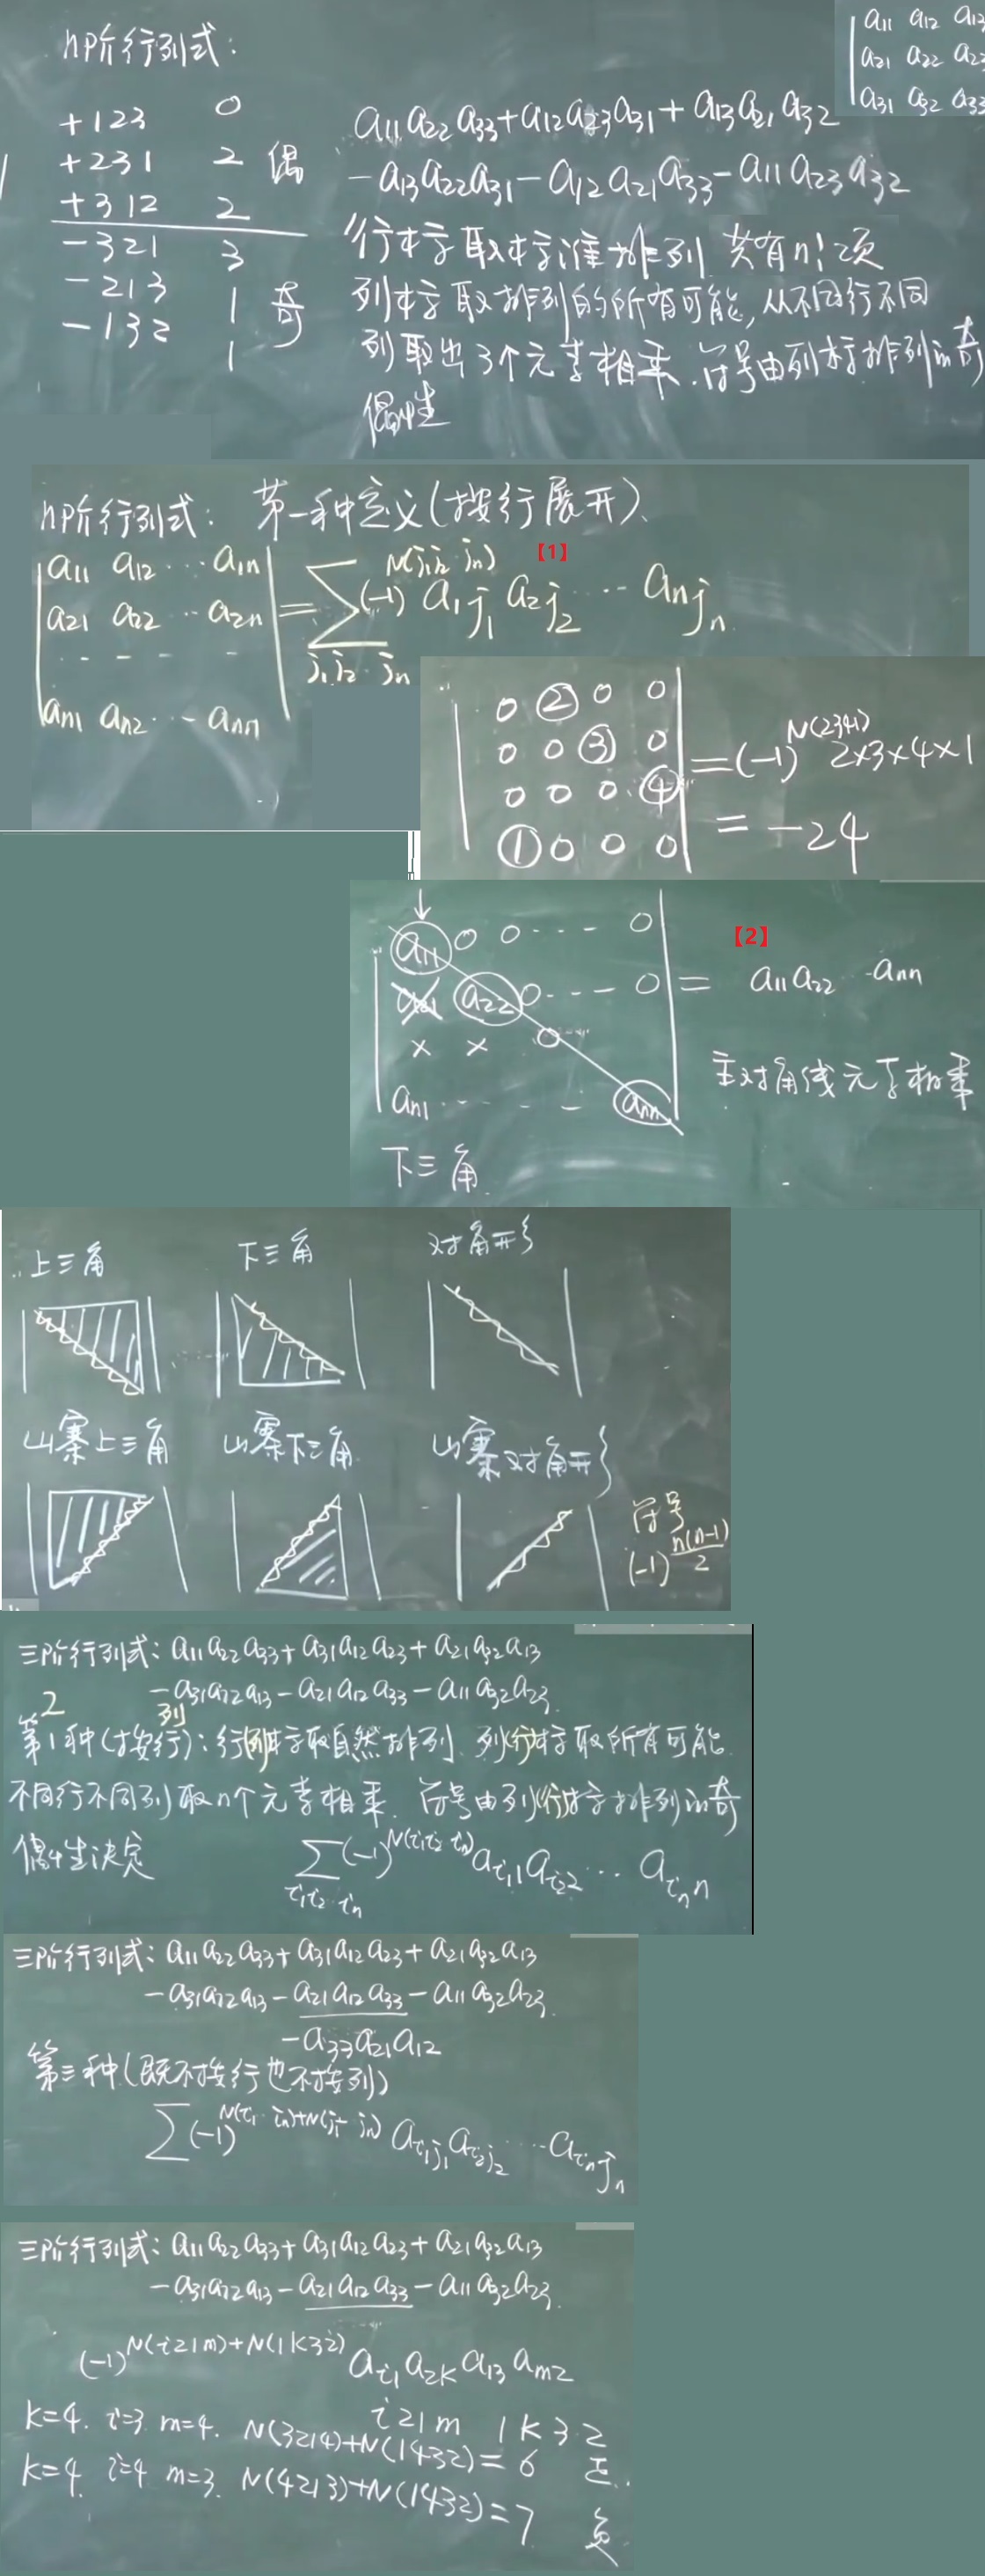 n阶行列式:
a11 a12 a13
a21 a22 a23
a31 a32 a33
+123 0
+231 2 偶
+312 2
-321 3
-213 1 奇
-132 1
a11a22a33+a12a23a31+a13a21a32
-a13a22a31-a12a21a33-a11a23a32
行标取标准排列 共有n!项
列标取排列的所有可能,从不同行不同
列取出3个元素相乘.符号由列标排列的奇
偶性
n阶行列式: 第一种定义(按行展开)
【1】
a11 a12 ··· a1n
a21 a22 ··· a2n
- - - - -
an1 an2 ··· ann
=∑(-1)^N(j1j2··jn) a1j1 a2j2 ··· anjn
j1j2··jn
0 ② 0 0
0 0 ③ 0
0 0 0 ④
① 0 0 0
=(-1)^N(2341) 2×3×4×1
= -24
【2】
a11 0 0 ··· 0
a21 a22 0 ··· 0
× × 0
an1 ··· ann
= a11a22···ann
主对角线元素相乘
下三角
上三角 下三角 对角形
山寨上三角 山寨下三角 山寨对角形
符号
(-1)^n(n-1)/2
三阶行列式: a11a22a33+a31a12a23+a21a32a13
-a31a22a13-a21a12a33-a11a32a23
2 列
第1种(按行):行(列)标取自然排列.列(行)标取所有可能.
不同行不同列取n个元素相乘.符号由列(行)标排列的奇
偶性决定
∑(-1)^N(i1i2··in) ai11 ai22 ··· ainn
i1i2··in
三阶行列式: a11a22a33+a31a12a23+a21a32a13
-a31a22a13-a21a12a33-a11a32a23
-a33a21a12
第三种(既不按行也不按列)
∑(-1)^N(i1··in)+N(j1··jn) ai1j1 ai2j2 ··· ainjn
三阶行列式: a11a22a33+a31a12a23+a21a32a13
-a31a22a13-a21a12a33-a11a32a23
(-1)^N(i21m)+N(1k32) ai1 a2k a13 am2
i21m 1k32
k=4. i=3. m=4. N(3214)+N(1432)=6 正.
k=4. i=4 m=3. N(4213)+N(1432)=7 负